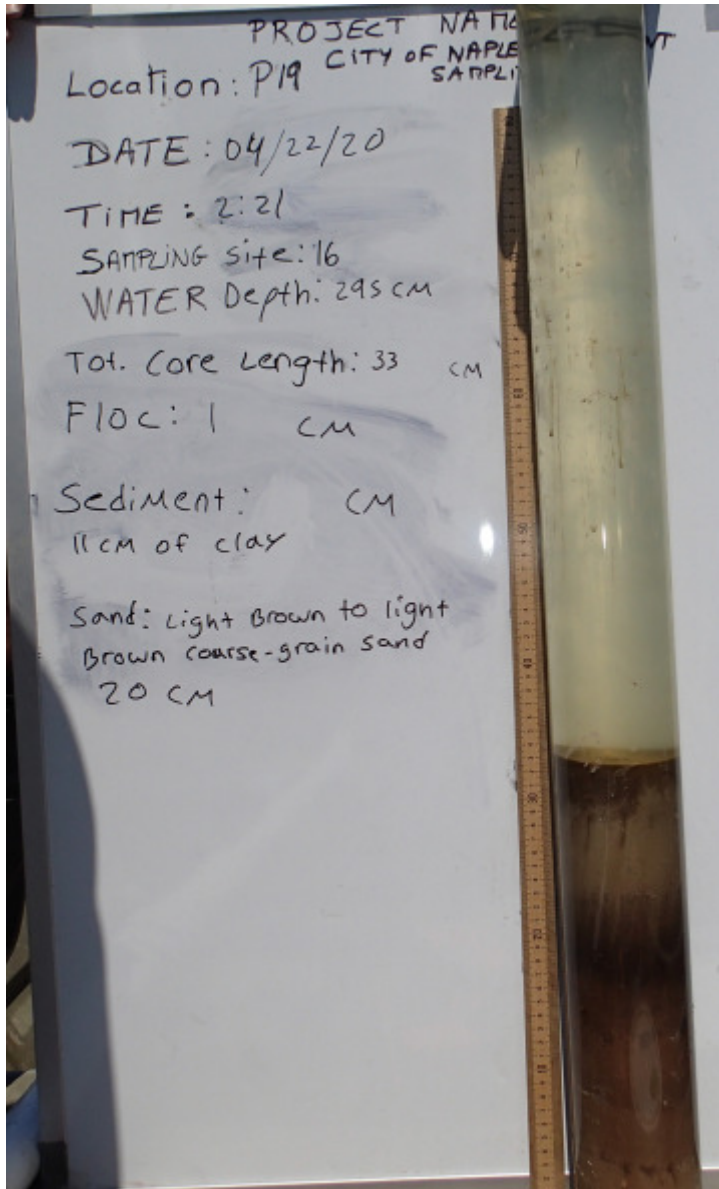 PROJECT NAM
CITY OF NAPLE
SAMPLI
Location: P19
DATE: 04/22/20
TIME: 2:21
SAMPLING Site: 16
WATER Depth: 295 CM
Tot. Core Length: 33 CM
Floc: 1 CM
Sediment: CM
11 CM of clay
Sand: Light Brown to light
Brown coarse-grain sand
20 CM
60
50
40
30
20
10